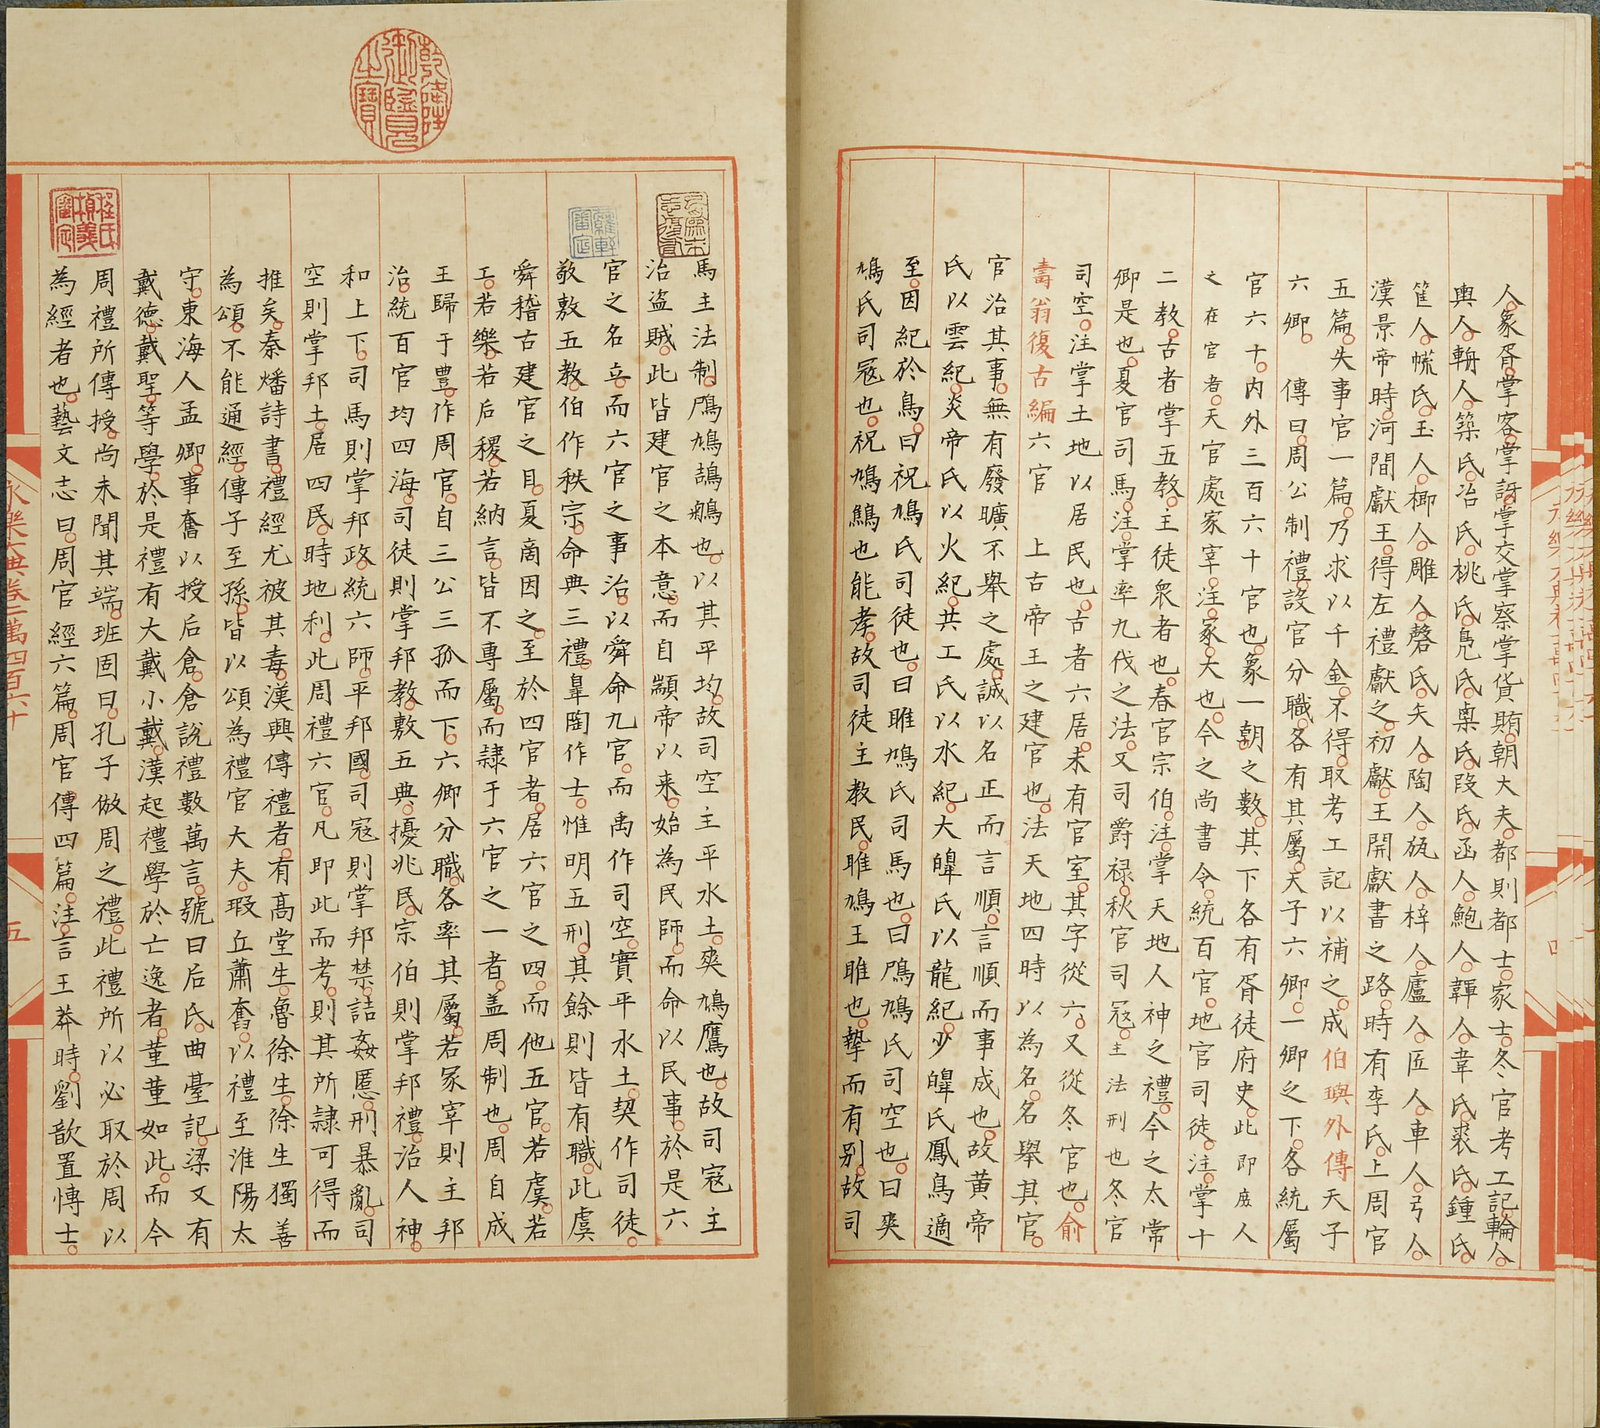 人象胥掌客掌訝掌交掌察掌貨賄朝大夫都則都士家士冬官考工記輪人
輿人輈人築氏冶氏桃氏鳧氏㮚氏段氏函人鮑人韗人韋氏裘氏鍾氏
筐人㡛氏玉人楖人雕人磬氏矢人陶人瓬人梓人廬人匠人車人弓人
漢景帝時河間獻王得左禮獻之初獻王開獻書之路時有李氏上周官
五篇失事官一篇乃求以千金不得取考工記以補之成伯璵外傳天子
六卿 傳曰周公制禮設官分職各有其屬天子六卿一卿之下各統屬
官六十內外三百六十官也象一朝之數其下各有胥徒府史此即庶人
之在官者天官處家宰注冢大也今之尚書令統百官地官司徒注掌十
二教古者掌五教王徒衆者也春官宗伯注掌天地人神之禮今之太常
卿是也夏官司馬注掌率九伐之法又司爵祿秋官司冦主法刑也冬官
司空注掌土地以居民也古者六居未有官室其字從六又從冬官也俞
壽翁復古編六官 上古帝王之建官也法天地四時以為名名舉其官
官治其事無有廢曠不舉之處誠以名正而言順言順而事成也故黃帝
氏以雲紀炎帝氏以火紀共工氏以水紀大皥氏以龍紀少皥氏鳳鳥適
至因紀於鳥曰祝鳩氏司徒也曰雎鳩氏司馬也曰鳲鳩氏司空也曰爽
鳩氏司冦也祝鳩鷦也能孝故司徒主教民雎鳩王雎也摯而有别故司
馬主法制鳲鳩鴶鵴也以其平均故司空主平水土爽鳩鷹也故司冦主
治盜賊此皆建官之本意而自顓帝以來始為民師而命以民事於是六
官之名立而六官之事治以舜命九官而禹作司空實平水土契作司徒
敬敷五教伯作秩宗命典三禮臯陶作士惟明五刑其餘則皆有職此虞
舜稽古建官之目夏商因之至於四官者居六官之四而他五官若虞若
工若樂若后稷若納言皆不專屬而隸于六官之一者盖周制也周自成
王歸于豊作周官自三公三孤而下六卿分職各率其屬若冢宰則主邦
治統百官均四海司徒則掌邦教敷五典擾兆民宗伯則掌邦禮治人神
和上下司馬則掌邦政統六師平邦國司冦則掌邦禁詰姦慝刑暴亂司
空則掌邦土居四民時地利此周禮六官凡即此而考則其所隸可得而
推矣秦燔詩書禮經尤被其毒漢興傳禮者有髙堂生魯徐生徐生獨善
為頌不能通經傳子至孫皆以頌為禮官大夫瑕丘蕭奮以禮至淮陽太
守東海人孟卿事奮以授后倉倉說禮數萬言號曰后氏曲臺記梁又有
戴德戴聖等學於是禮有大戴小戴漢起禮學於亡逸者董董如此而今
周禮所傳授尚未聞其端班固曰孔子倣周之禮此禮所以必取於周以
為經者也藝文志曰周官經六篇周官傳四篇注言王莽時劉歆置博士
永樂大典卷二萬四百六十
五
乾隆御覽之寶